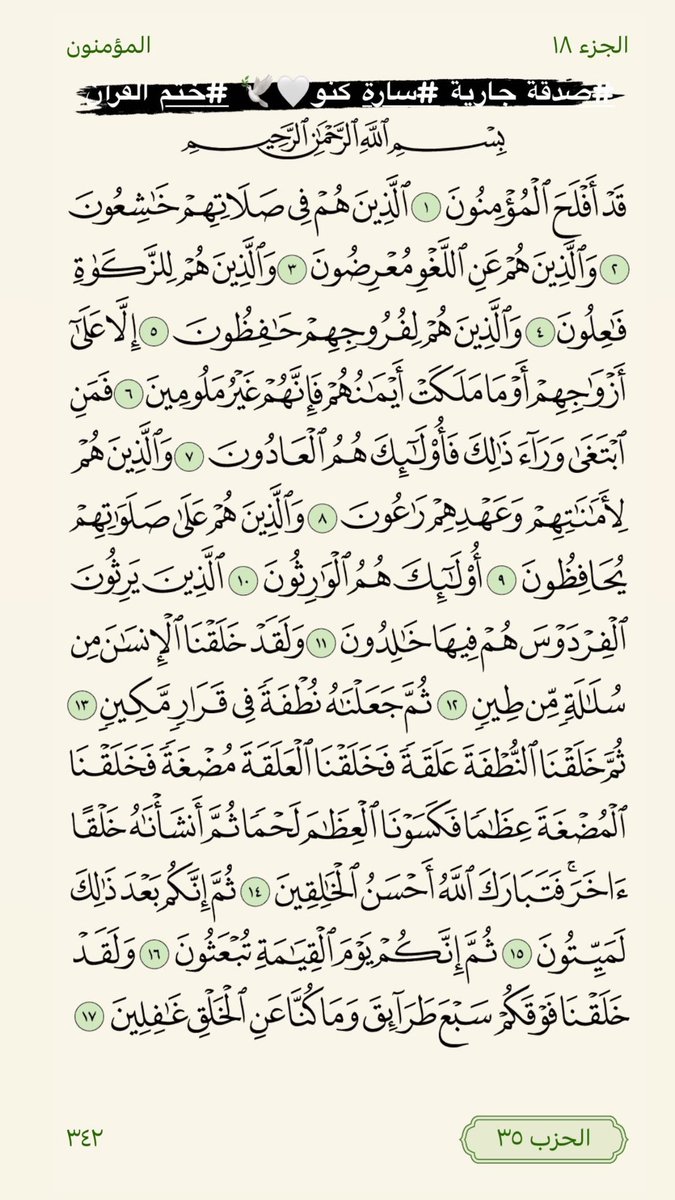 الجزء ١٨
المؤمنون
#صدقة جارية #سارة كنو🤍🕊 #ختم القرآن
بِسْمِ ٱللَّهِ ٱلرَّحْمَٰنِ ٱلرَّحِيمِ
قَدْ أَفْلَحَ ٱلْمُؤْمِنُونَ ١ ٱلَّذِينَ هُمْ فِى صَلَاتِهِمْ خَٰشِعُونَ
٢ وَٱلَّذِينَ هُمْ عَنِ ٱللَّغْوِ مُعْرِضُونَ ٣ وَٱلَّذِينَ هُمْ لِلزَّكَوٰةِ
فَٰعِلُونَ ٤ وَٱلَّذِينَ هُمْ لِفُرُوجِهِمْ حَٰفِظُونَ ٥ إِلَّا عَلَىٰٓ
أَزْوَٰجِهِمْ أَوْ مَا مَلَكَتْ أَيْمَٰنُهُمْ فَإِنَّهُمْ غَيْرُ مَلُومِينَ ٦ فَمَنِ
ٱبْتَغَىٰ وَرَآءَ ذَٰلِكَ فَأُو۟لَٰٓئِكَ هُمُ ٱلْعَادُونَ ٧ وَٱلَّذِينَ هُمْ
لِأَمَٰنَٰتِهِمْ وَعَهْدِهِمْ رَٰعُونَ ٨ وَٱلَّذِينَ هُمْ عَلَىٰ صَلَوَٰتِهِمْ
يُحَافِظُونَ ٩ أُو۟لَٰٓئِكَ هُمُ ٱلْوَٰرِثُونَ ١٠ ٱلَّذِينَ يَرِثُونَ
ٱلْفِرْدَوْسَ هُمْ فِيهَا خَٰلِدُونَ ١١ وَلَقَدْ خَلَقْنَا ٱلْإِنسَٰنَ مِن
سُلَٰلَةٍ مِّن طِينٍ ١٢ ثُمَّ جَعَلْنَٰهُ نُطْفَةً فِى قَرَارٍ مَّكِينٍ ١٣
ثُمَّ خَلَقْنَا ٱلنُّطْفَةَ عَلَقَةً فَخَلَقْنَا ٱلْعَلَقَةَ مُضْغَةً فَخَلَقْنَا
ٱلْمُضْغَةَ عِظَٰمًا فَكَسَوْنَا ٱلْعِظَٰمَ لَحْمًا ثُمَّ أَنشَأْنَٰهُ خَلْقًا
ءَاخَرَ ۚ فَتَبَارَكَ ٱللَّهُ أَحْسَنُ ٱلْخَٰلِقِينَ ١٤ ثُمَّ إِنَّكُم بَعْدَ ذَٰلِكَ
لَمَيِّتُونَ ١٥ ثُمَّ إِنَّكُمْ يَوْمَ ٱلْقِيَٰمَةِ تُبْعَثُونَ ١٦ وَلَقَدْ
خَلَقْنَا فَوْقَكُمْ سَبْعَ طَرَآئِقَ وَمَا كُنَّا عَنِ ٱلْخَلْقِ غَٰفِلِينَ ١٧
الحزب ٣٥
٣٤٢